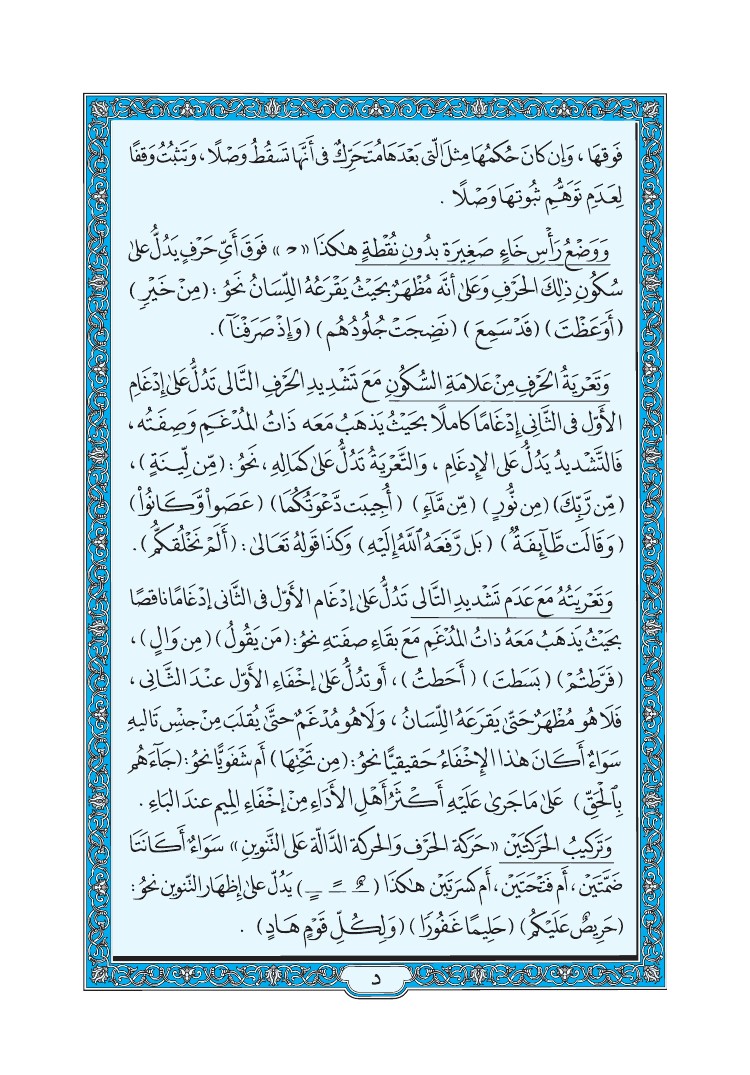 فَوقهَا ، وَإن كانَ حُكمُهَا مِثلَ الّتي بَعْدَهَا مُتَحَرِّكٌ في أَنَّهَا تَسقُطُ وَصْلًا ، وَتَثبُتُ وَقفًا
لِعَدَمِ تَوَهُّمِ ثُبوتهَا وَصْلًا .
وَوَضْعُ رَأْسِ خَاءٍ صَغِيرَة بدُونِ نُقْطَةٍ هٰكذَا « حـ » فَوقَ أَيِّ حَرْفٍ يَدُلُّ عَلىٰ
سُكُونِ ذٰلِكَ الحَرْفِ وَعَلىٰ أنَّه مُظْهَرٌ بحَيْثُ يَقْرَعُهُ اللِّسَانُ نَحوُ : (مِنْ خَيْرٍ)
(أَوَعَظْتَ) (قَدْ سَمِعَ) (نَضِجَتْ جُلُودُهُم) (وَإِذْ صَرَفْنَآ) .
وَتَعْرِيَةُ الحَرْفِ مِنْ عَلامَةِ السُّكُونِ مَعَ تَشْدِيدِ الحَرْفِ التَّالى تَدُلُّ عَلىٰ إدْغَامِ
الأوّل فى الثَّانِي إِدْغَامًا كامِلًا بحَيْثُ يَذهَبُ مَعَه ذَاتُ المُدْغَمِ وَصِفَتُه ،
فَالتَّشْدِيدُ يَدُلُّ عَلى الإدغَامِ ، وَالتَّعْرِيَةُ تَدُلُّ عَلىٰ كَمَالِهِ ، نَحْوُ : (مِّن لِّينَةٍ) ،
(مِّن رَّبِّكَ) (مِن نُّورٍ) (مِّن مَّآءٍ) (أُجِيبَت دَّعْوَتُكُمَا) (عَصَواْ وَّكَانُواْ)
(وَقَالَت طَّآئِفَةٌ) (بَل رَّفَعَهُ ٱللَّهُ إِلَيْهِ) وَكَذَا قَولهُ تَعَالىٰ : (أَلَمْ نَخْلُقكُّم) .
وَتَعْرِيَتُهُ مَعَ عَدَمِ تَشْدِيدِ التَّالى تَدُلُّ عَلىٰ إدغَام الأوّل فى الثَّانى إدغَامًا ناقصًا
بحَيْثُ يَذهَبُ مَعَهُ ذاتُ المُدْغَمِ مَعَ بقَاءِ صِفَتهِ نحوُ : (مَن يَقُولُ) (مِن وَالٍ) ،
(فَرَّطتُمْ) (بَسَطتَ) (أَحَطتُ) ، أَو تدُلُّ عَلىٰ إخْفَاءِ الأوّل عندَ الثَّانى ،
فَلَا هُو مُظْهَرٌ حَتّىٰ يَقرَعَهُ اللِّسَانُ ، وَلَا هُو مُدْغَمٌ حتّىٰ يُقلَبَ مِنْ جنْسِ تَاليهِ
سَوَاءٌ أَكَانَ هٰذا الإخْفَاءُ حَقيقيًّا نحوُ : (مِن تَحْتِهَا) أَم شَفَويًّا نحوُ : (جَآءَهُم
بِٱلْحَقِّ) عَلىٰ مَا جَرىٰ عَلَيْهِ أَكْثَرُ أَهْلِ الأَدَاءِ مِنْ إخْفَاءِ المِيم عندَ البَاءِ .
وَتَركيبُ الحَرَكَتَيْنِ « حَرَكة الحَرف وَالحركة الدَّالّة عَلى التَّنوين » سَوَاءٌ أَكَانَتَا
ضَمَّتَيْن ، أَم فَتْحَتَيْن ، أَم كَسرَتَيْن هٰكذَا ( ـٌـ ـًـ ـٍـ ) يَدُلّ عَلىٰ إظهَار التّنوين نحوُ :
(حَرِيصٌ عَلَيْكُم) (حَلِيمًا غَفُورًا) (وَلِكُلِّ قَوْمٍ هَادٍ) .
د